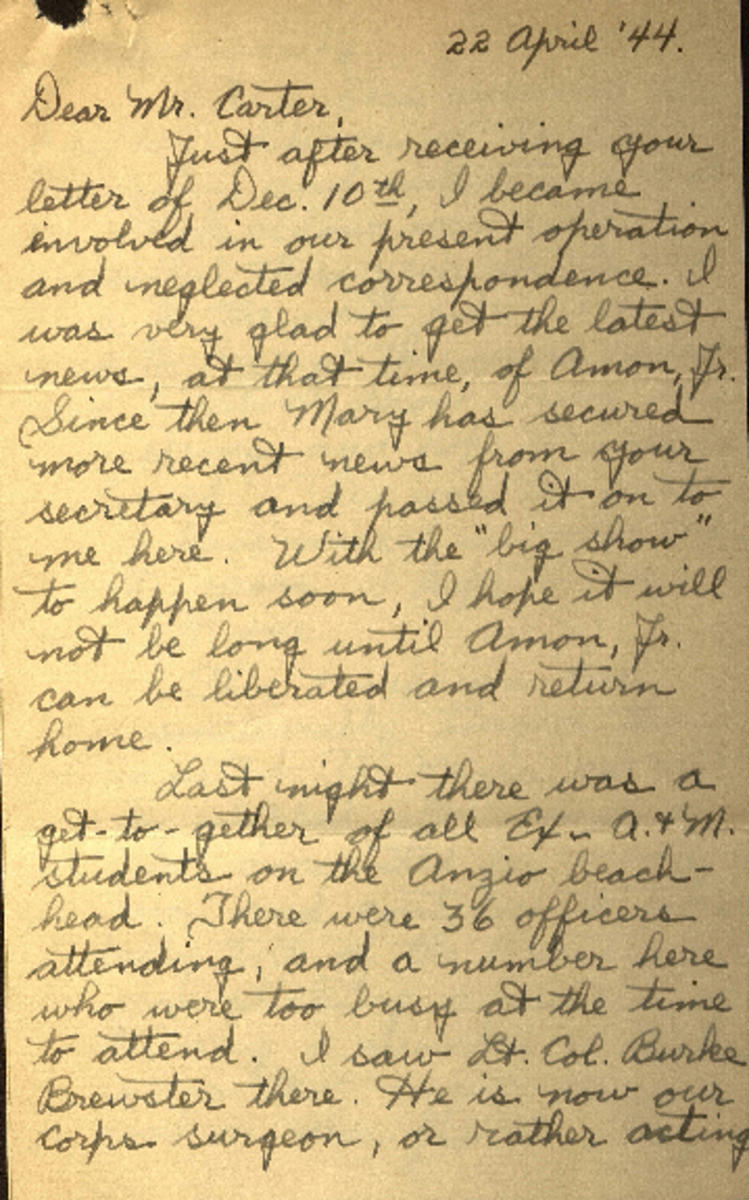 22 April '44.
Dear Mr. Carter,
Just after receiving your
letter of Dec. 10th, I became
involved in our present operation
and neglected correspondence. I
was very glad to get the latest
news, at that time, of Amon, Jr.
Since then Mary has secured
more recent news from your
secretary and passed it on to
me here. With the "big show"
to happen soon, I hope it will
not be long until Amon, Jr.
can be liberated and return
home.
Last night there was a
get-to-gether of all Ex-A.+M.
students on the Anzio beach-
head. There were 36 officers
attending, and a number here
who were too busy at the time
to attend. I saw Lt. Col. Burke
Brewster there. He is now our
corps surgeon, or rather acting